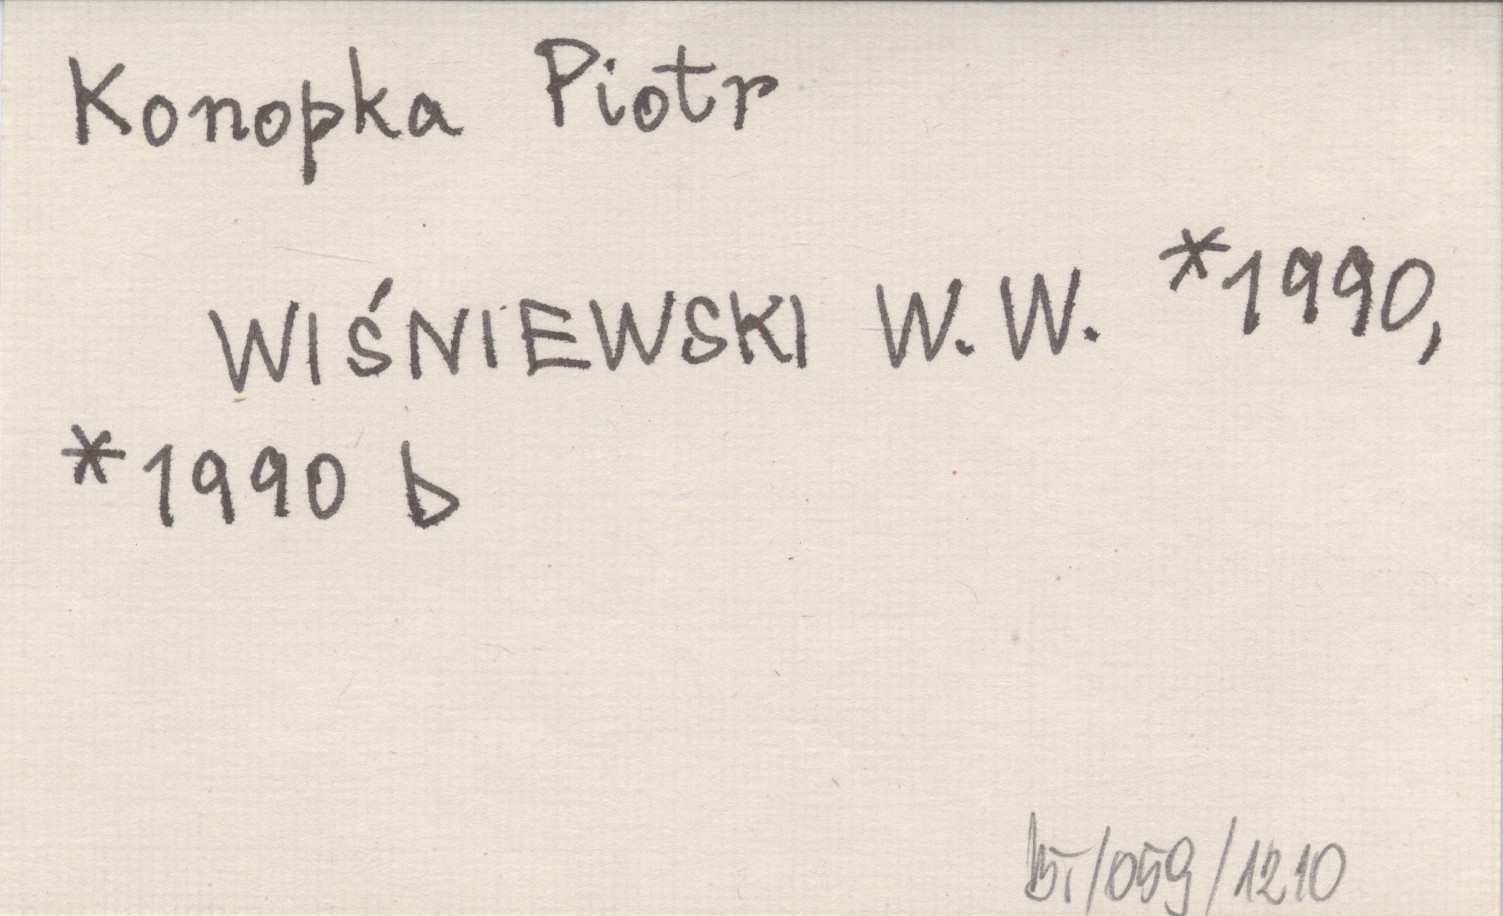 Konopka Piotr
WIŚNIEWSKI W. W. *1990,
*1990 b
/059/1210